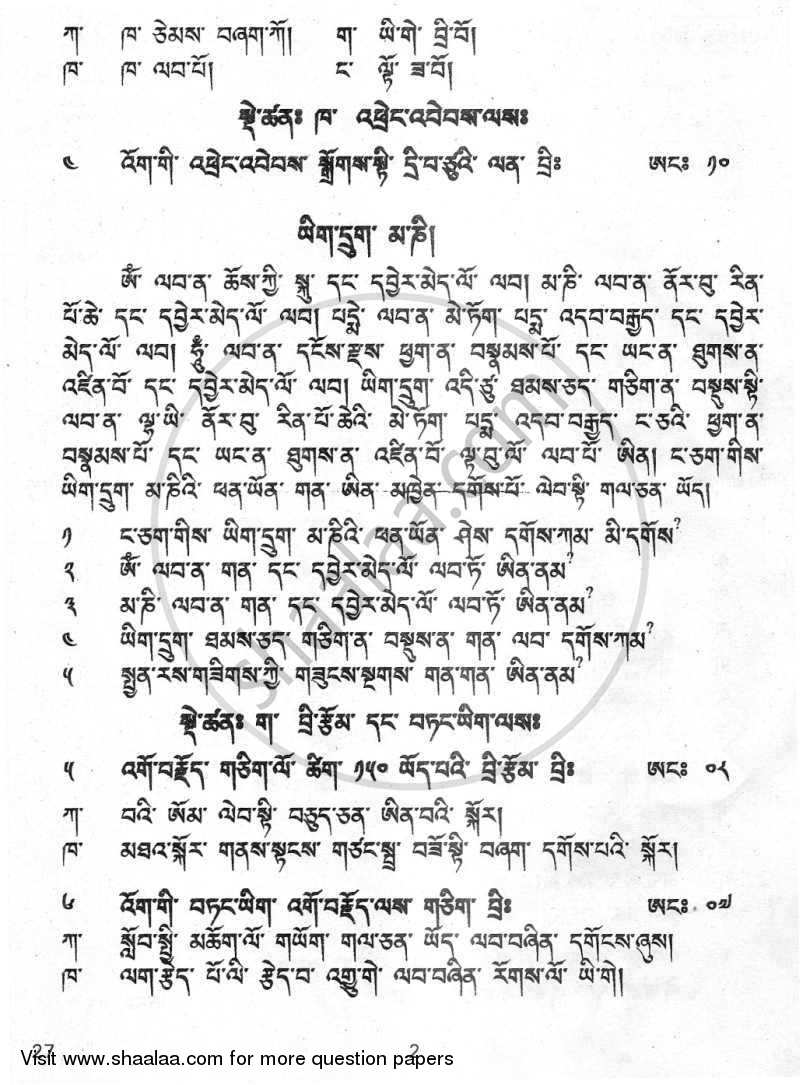 ཀ་ ཁ་ ཅེམས་ བཞག་ཀོ། ག་ ཡི་གེ་ བྲི་བོ།
ཁ་ ཁ་ ལབ་པོ། ང་ ལྟོ་ ཟ་བོ།
སྡེ་ཚན༔ ཁ་ འཕྲེང་འབེབས་ལས༔
༤ འོག་གི་ འཕྲེང་འབེབས་ སྒྲོགས་སྟི་ དྲི་བ་ཙུའི་ ལན་ བྲི༔ ཨང༔ ༡༠
ཡིག་དྲུག་ མ་ཎི།
ཨོཾ་ ལབ་ན་ ཆོས་ཀྱི་ སྐུ་ དང་ དབྱེར་མེད་ལོ་ ལབ། མ་ཎི་ ལབ་ན་ ནོར་བུ་ རིན་
པོ་ཆེ་ དང་ དབྱེར་མེད་ལོ་ ལབ། པདྨེ་ ལབ་ན་ མེ་ཏོག་ པདྨ་ འདབ་བརྒྱད་ དང་ དབྱེར་
མེད་ལོ་ ལབ། ཧཱུྃ་ ལབ་ན་ དངོས་རྫས་ ཕྱག་ན་ བསྣམས་པོ་ དང་ ཡང་ན་ ཐུགས་ན་
འཛིན་བོ་ དང་ དབྱེར་མེད་ལོ་ ལབ། ཡིག་དྲུག་ འདི་ཙུ་ ཐམས་ཅད་ གཅིག་ན་ བསྡུས་སྟི་
ལབ་ན་ ལྷ་ཡི་ ནོར་བུ་ རིན་པོ་ཆེའི་ མེ་ཏོག་ པདྨ་ འདབ་བརྒྱད་ ང་ཅའི་ ཕྱག་ན་
བསྣམས་པོ་ དང་ ཡང་ན་ ཐུགས་ན་ འཛིན་བོ་ ལྟ་བུ་ལོ་ ལབ་པོ་ ཨིན། ང་ཅག་གིས་
ཡིག་དྲུག་ མ་ཎིའི་ ཕན་ཡོན་ གན་ ཨིན་ མཁྱེན་ དགོས་པོ་ ལེབ་སྟི་ གལ་ཅན་ ཡོད།
༡ ང་ཅག་གིས་ ཡིག་དྲུག་ མ་ཎིའི་ ཕན་ཡོན་ ཤེས་ དགོས་ཀམ་ མི་དགོས?
༢ ཨོཾ་ ལབ་ན་ གན་ དང་ དབྱེར་མེད་ལོ་ ལབ་ཏོ་ ཨིན་ནམ?
༣ མ་ཎི་ ལབ་ན་ གན་ དང་ དབྱེར་མེད་ལོ་ ལབ་ཏོ་ ཨིན་ནམ?
༤ ཡིག་དྲུག་ ཐམས་ཅད་ གཅིག་ན་ བསྡུས་ན་ གན་ ལབ་ དགོས་ཀམ?
༥ སྤྱན་རས་གཟིགས་ཀྱི་ གཟུངས་སྔགས་ གན་གན་ ཨིན་ནམ?
སྡེ་ཚན༔ ག་ བྲི་རྩོམ་ དང་ བཏང་ཡིག་ལས༔
༥ འགོ་བརྗོད་ གཅིག་ལོ་ ཚིག་ ༡༥༠ ཡོད་བའི་ བྲི་རྩོམ་ བྲི༔ ཨང༔ ༠༨
ཀ་ བའི་ ཨོམ་ ལེབ་སྟི་ བཅུད་ཅན་ ཨིན་བའི་ སྐོར།
ཁ་ མཐའ་སྐོར་ གནས་སྟངས་ གཙང་སྦྲ་ བཟོ་སྟི་ བཞག་ དགོས་པའི་ སྐོར།
༦ འོག་གི་ བཏང་ཡིག་ འགོ་བརྗོད་ལས་ གཅིག་ བྲི༔ ཨང༔ ༠༧
ཀ་ སློབ་སྤྱི་ མཆོག་ལོ་ གཡོག་ གལ་ཅན་ ཡོད་ ལབ་བཞིན་ དགོངས་ཞུས།
ཁ་ ལག་རྩེད་ པོ་ལི་ རྩེད་བ་ འགྱུ་གེ་ ལབ་བཞིན་ རོགས་ལོ་ ཡི་གེ།
27 2
Visit www.shaalaa.com for more question papers
shaalaa.com